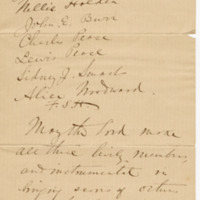 Nellie Holder
John E. Burr
Charles Perce
Lewis Perce
Sidney J. Smart
Alice Woodward.
F.S.H
May the Lord make
all these lively members
and instrumental in
bringing scores of others